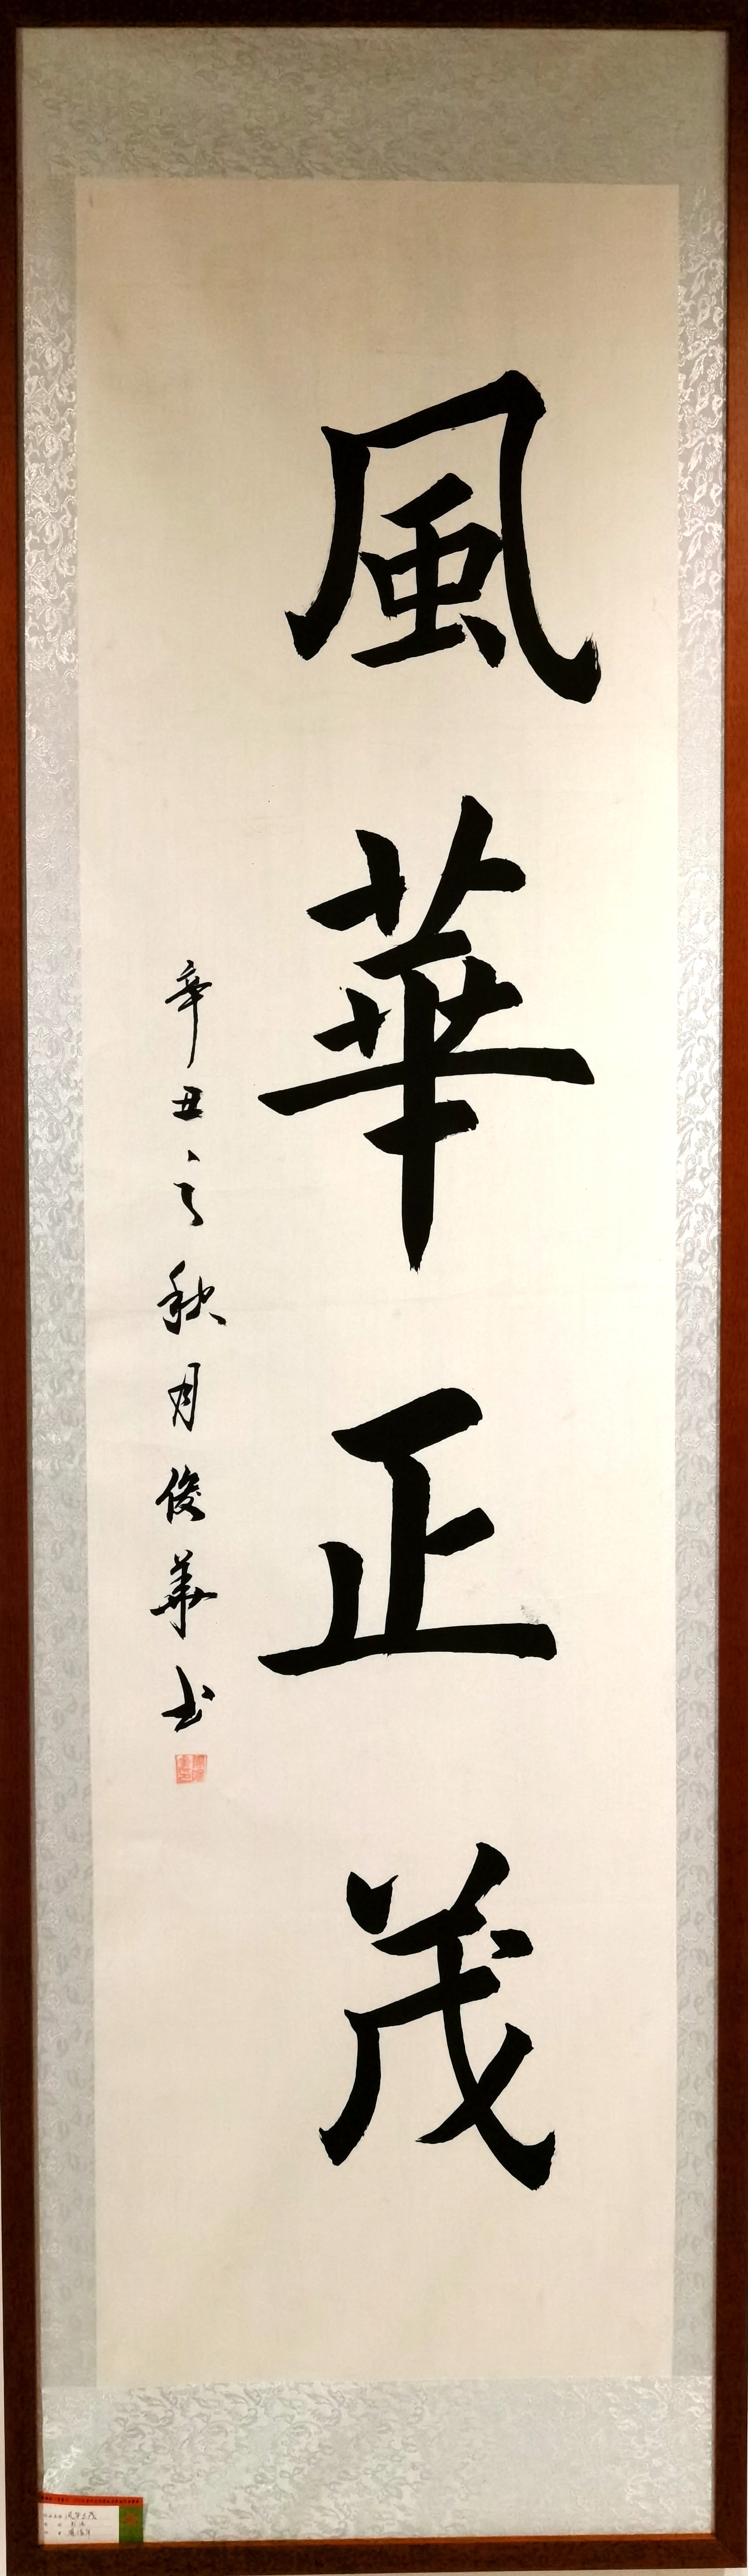 風華正茂
辛丑之秋月俊華书